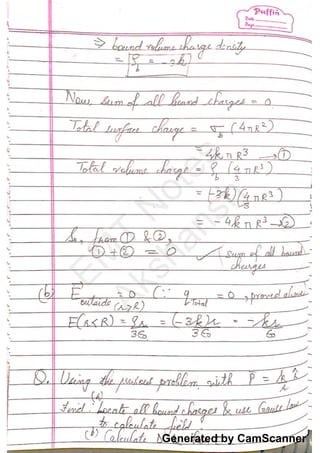 Puffin
Date
Page
⇒ bound volume charge density
= [ρ_b = -3k]
Now, sum of all bound charges = 0
Total surface charge = σ_b (4πR²)
= 4kπR³ → ①
Total volume charge = ρ_b (4/3 πR³)
= (-3k)(4/3 πR³)
= -4kπR³ → ②
So, from ① & ②,
① + ② = 0 ✓ (sum of all bound
charges
(b) E⃗ outside (r>R) = 0 (∵ q Total = 0, proved above
E(r<R) = ρr/3ϵ = (-3k)r/3ϵ = -kr/ϵ
Q. Using the previous problem, with P⃗ = k/r r̂
Find: (a) Locate all bound charges & use Gauss law
to calculate field
(b) Calculate
Generated by CamScanner